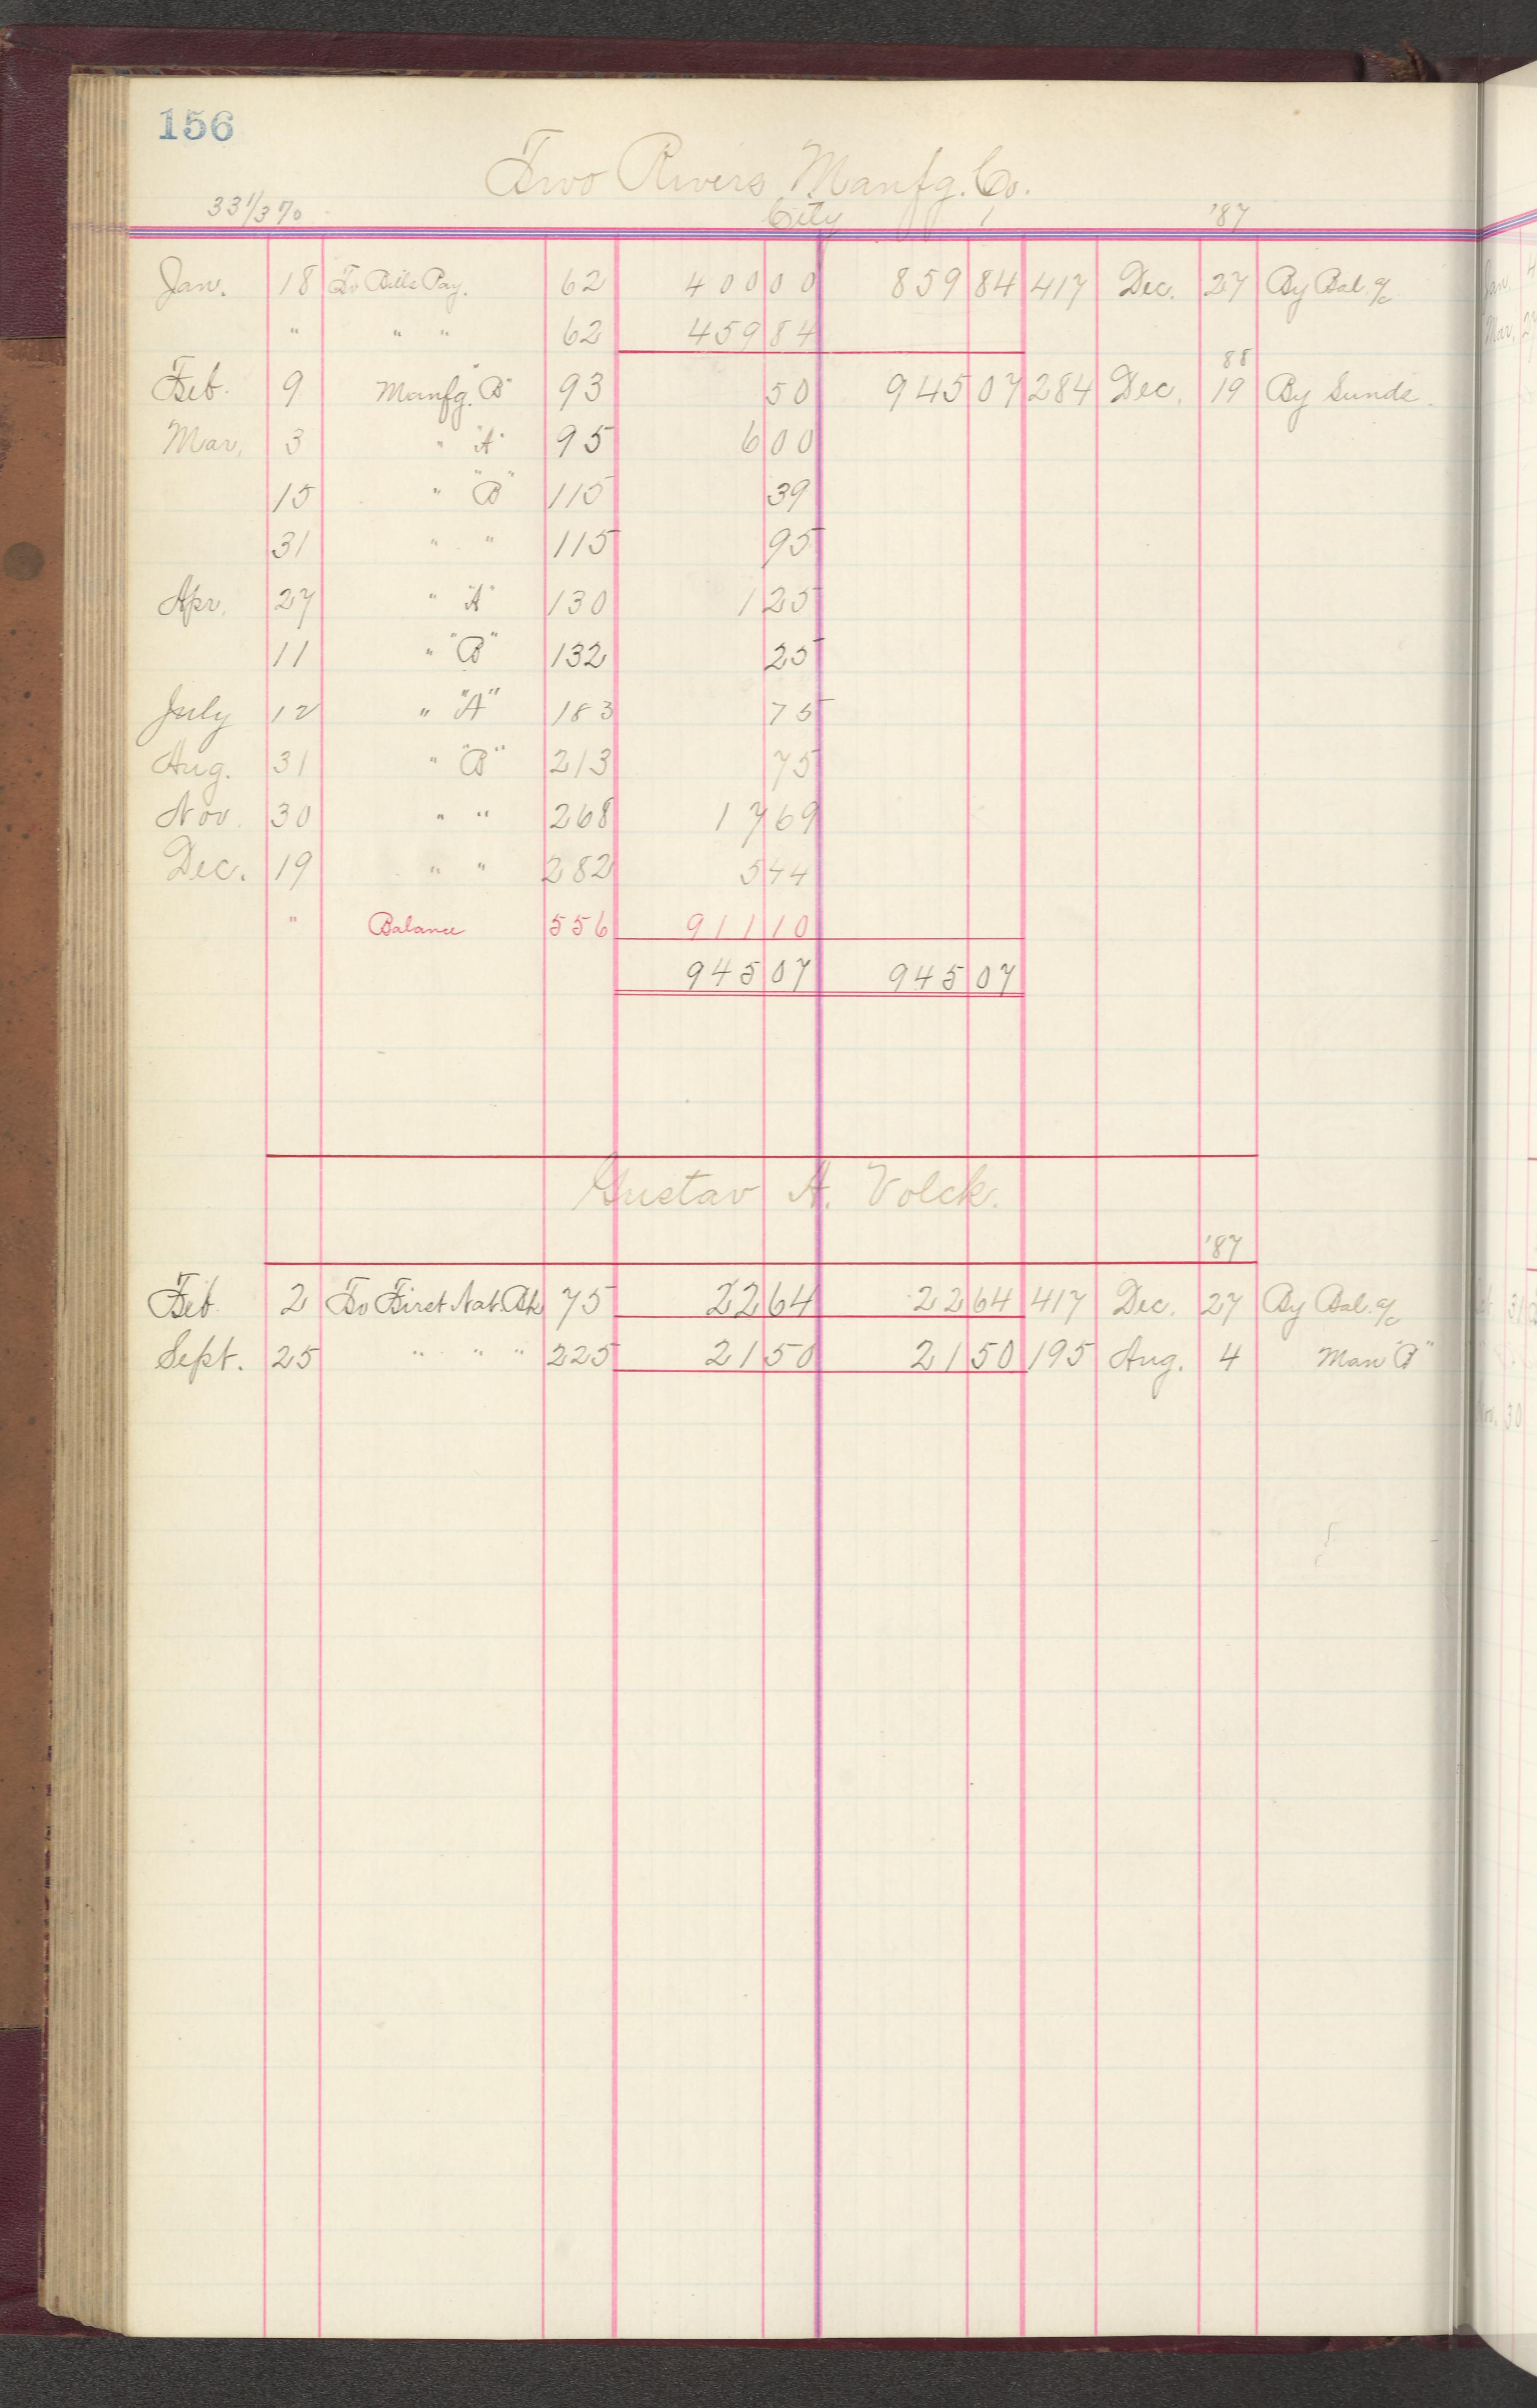 156
Two Rivers Manfg. Co.
33 1/3 % City '87
Jan. 18 To Bills Pay. 62 400 00 859 84 417 Dec. 27 By Bal. a/c
" " " 62 459 84
88
Feb. 9 Manfg. "B" 93 50 945 07 284 Dec. 19 By Sunds.
Mar. 3 " "A" 95 6 00
15 " "B" 115 39
31 " " 115 95
Apr. 27 " "A" 130 1 25
11 " "B" 132 25
July 12 " "A" 183 75
Aug. 31 " "B" 213 75
Nov. 30 " " 268 17 69
Dec. 19 " " 282 5 44
" Balance 556 911 10
945 07 945 07
Gustav A. Volck.
'87
Feb. 2 To First Nat. Bk 75 22 64 22 64 417 Dec. 27 By Bal. a/c
Sept. 25 " " " 225 21 50 21 50 195 Aug. 4 Man "B"